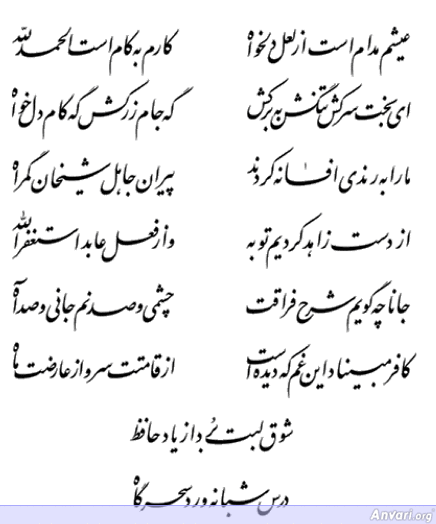 عیشم مدام است از لعل دلخواه کارم به کام است الحمدلله
ای بخت سرکش تنگش به بر کش گه جام زر کش گه کام دل خواه
ما را به رندی افسانه کردند پیران جاهل شیخان گمراه
از دست زاهد کردیم توبه و از فعل عابد استغفرالله
جانا چه گویم شرح فراقت چشمی و صد نم جانی و صد آه
کافر مبیناد این غم که دیده است از قامتت سرو از عارضت ماه
شوق لبت برد از یاد حافظ
درس شبانه ورد سحرگاه
Anvari.org